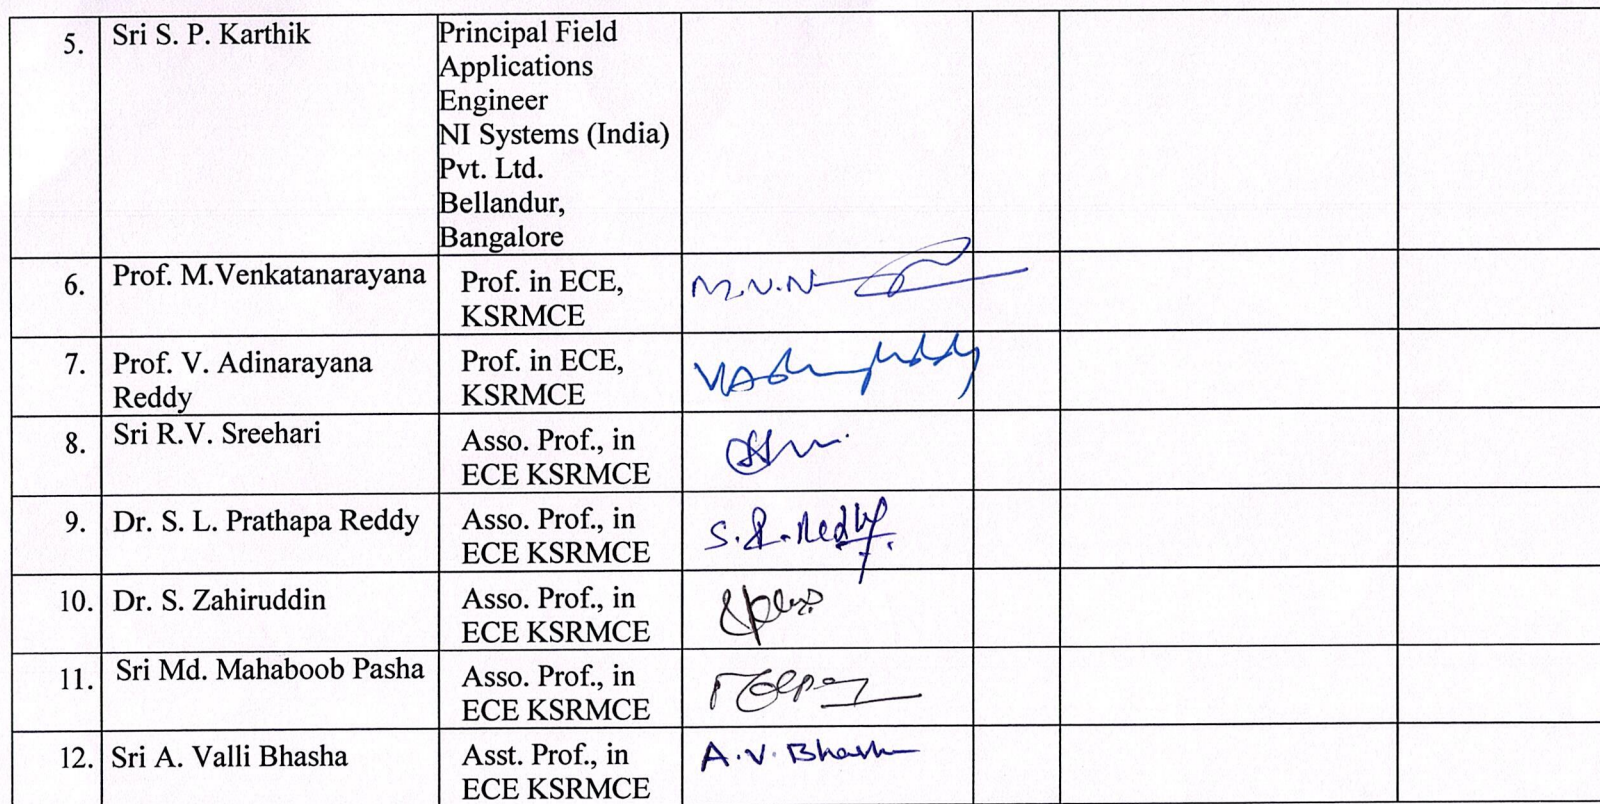 5. Sri S. P. Karthik Principal Field
Applications
Engineer
NI Systems (India)
Pvt. Ltd.
Bellandur,
Bangalore
6. Prof. M.Venkatanarayana Prof. in ECE, M.V.N
KSRMCE
7. Prof. V. Adinarayana Prof. in ECE,
Reddy KSRMCE
8. Sri R.V. Sreehari Asso. Prof., in
ECE KSRMCE
9. Dr. S. L. Prathapa Reddy Asso. Prof., in S.L.Reddy
ECE KSRMCE
10. Dr. S. Zahiruddin Asso. Prof., in
ECE KSRMCE
11. Sri Md. Mahaboob Pasha Asso. Prof., in
ECE KSRMCE
12. Sri A. Valli Bhasha Asst. Prof., in A.V. Bhasha
ECE KSRMCE